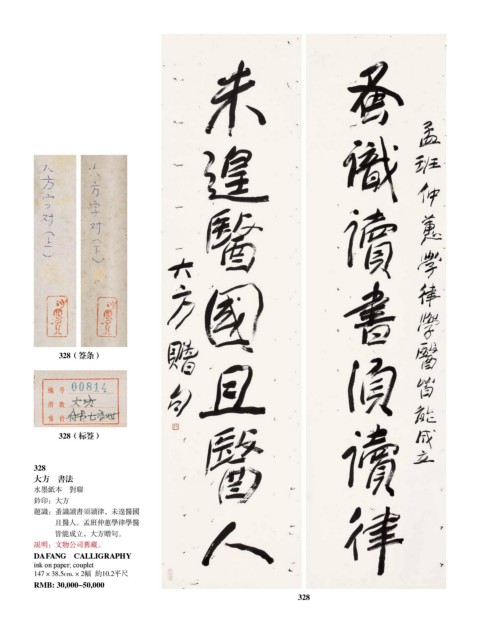 蚤識讀書須讀律
孟班仲蕙學律學醫皆能成立
未遑醫國且醫人
大方贈句
328（签条）
00814
328（标签）
328
大方　書法
水墨紙本　對聯
鈐印：大方
題識：蚤識讀書須讀律，未遑醫國
且醫人。孟班仲蕙學律學醫
皆能成立，大方贈句。
説明：文物公司舊藏。
DA FANG CALLIGRAPHY
ink on paper; couplet
147 × 38.5cm. × 2幅 約10.2平尺
RMB: 30,000–50,000
328